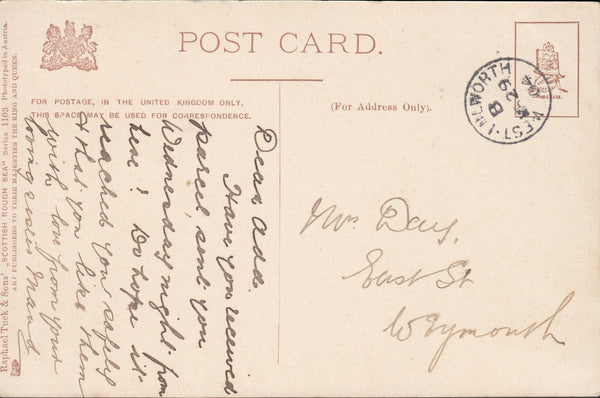 POST CARD.
FOR POSTAGE, IN THE UNITED KINGDOM ONLY,
THIS SPACE MAY BE USED FOR CORRESPONDENCE.
(For Address Only).
WEST-LULWORTH
B
29
04
Dear Add.
Have you received
parcel, sent you
Wednesday night from
here? Do hope it
reached you safely
& that you like them
with love from your
loving sister Maud
Mrs Day,
East St
Weymouth
Raphael Tuck & Sons' „SCOTTISH ROUGH SEA" Series 1103 Phototyped in Austria.
ART PUBLISHERS TO THEIR MAJESTIES THE KING AND QUEEN.